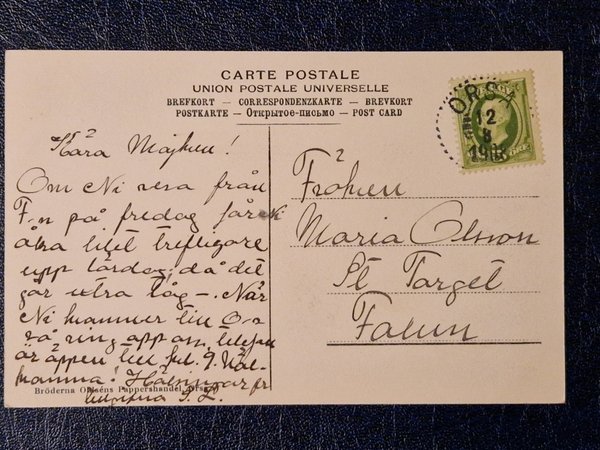 CARTE POSTALE
UNION POSTALE UNIVERSELLE
BREFKORT — CORRESPONDENZKARTE — BREVKORT
POSTKARTE — Открытое-письмо — POST CARD
ORSA
12
8
1908
Kära Majken!
Om Ni resa från
F-n på fredag får Ni
åka litet trefligare
upp lördag, då det
går extra tåg —. När
Ni kommer till O-a
så ring upp oss, telefon
är öppen till kl. 9. Väl-
komna! Hälsningar fr
Fröken
Maria Olsson
St Torget
Falun
Bröderna Pappershandel, Orsa